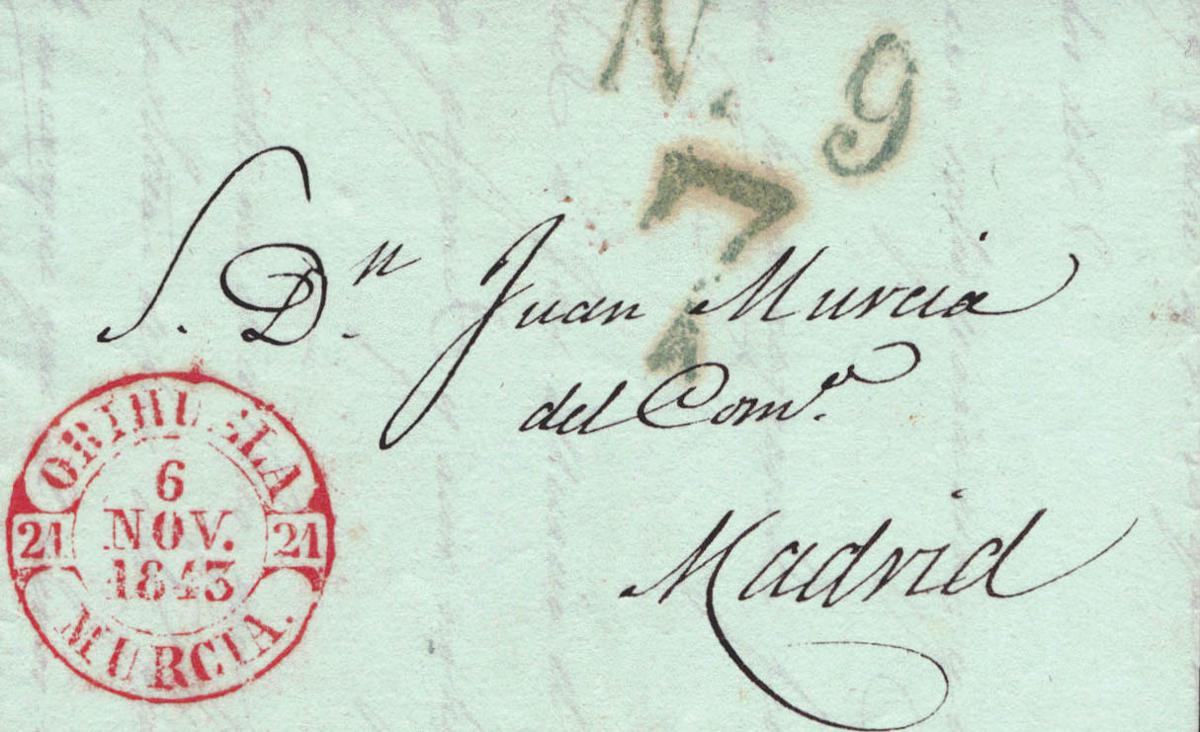 N. 9
7
S. Dn. Juan Murcia
del Como.
Madrid
ORIHUELA
21 21
6
NOV.
1843
MURCIA.